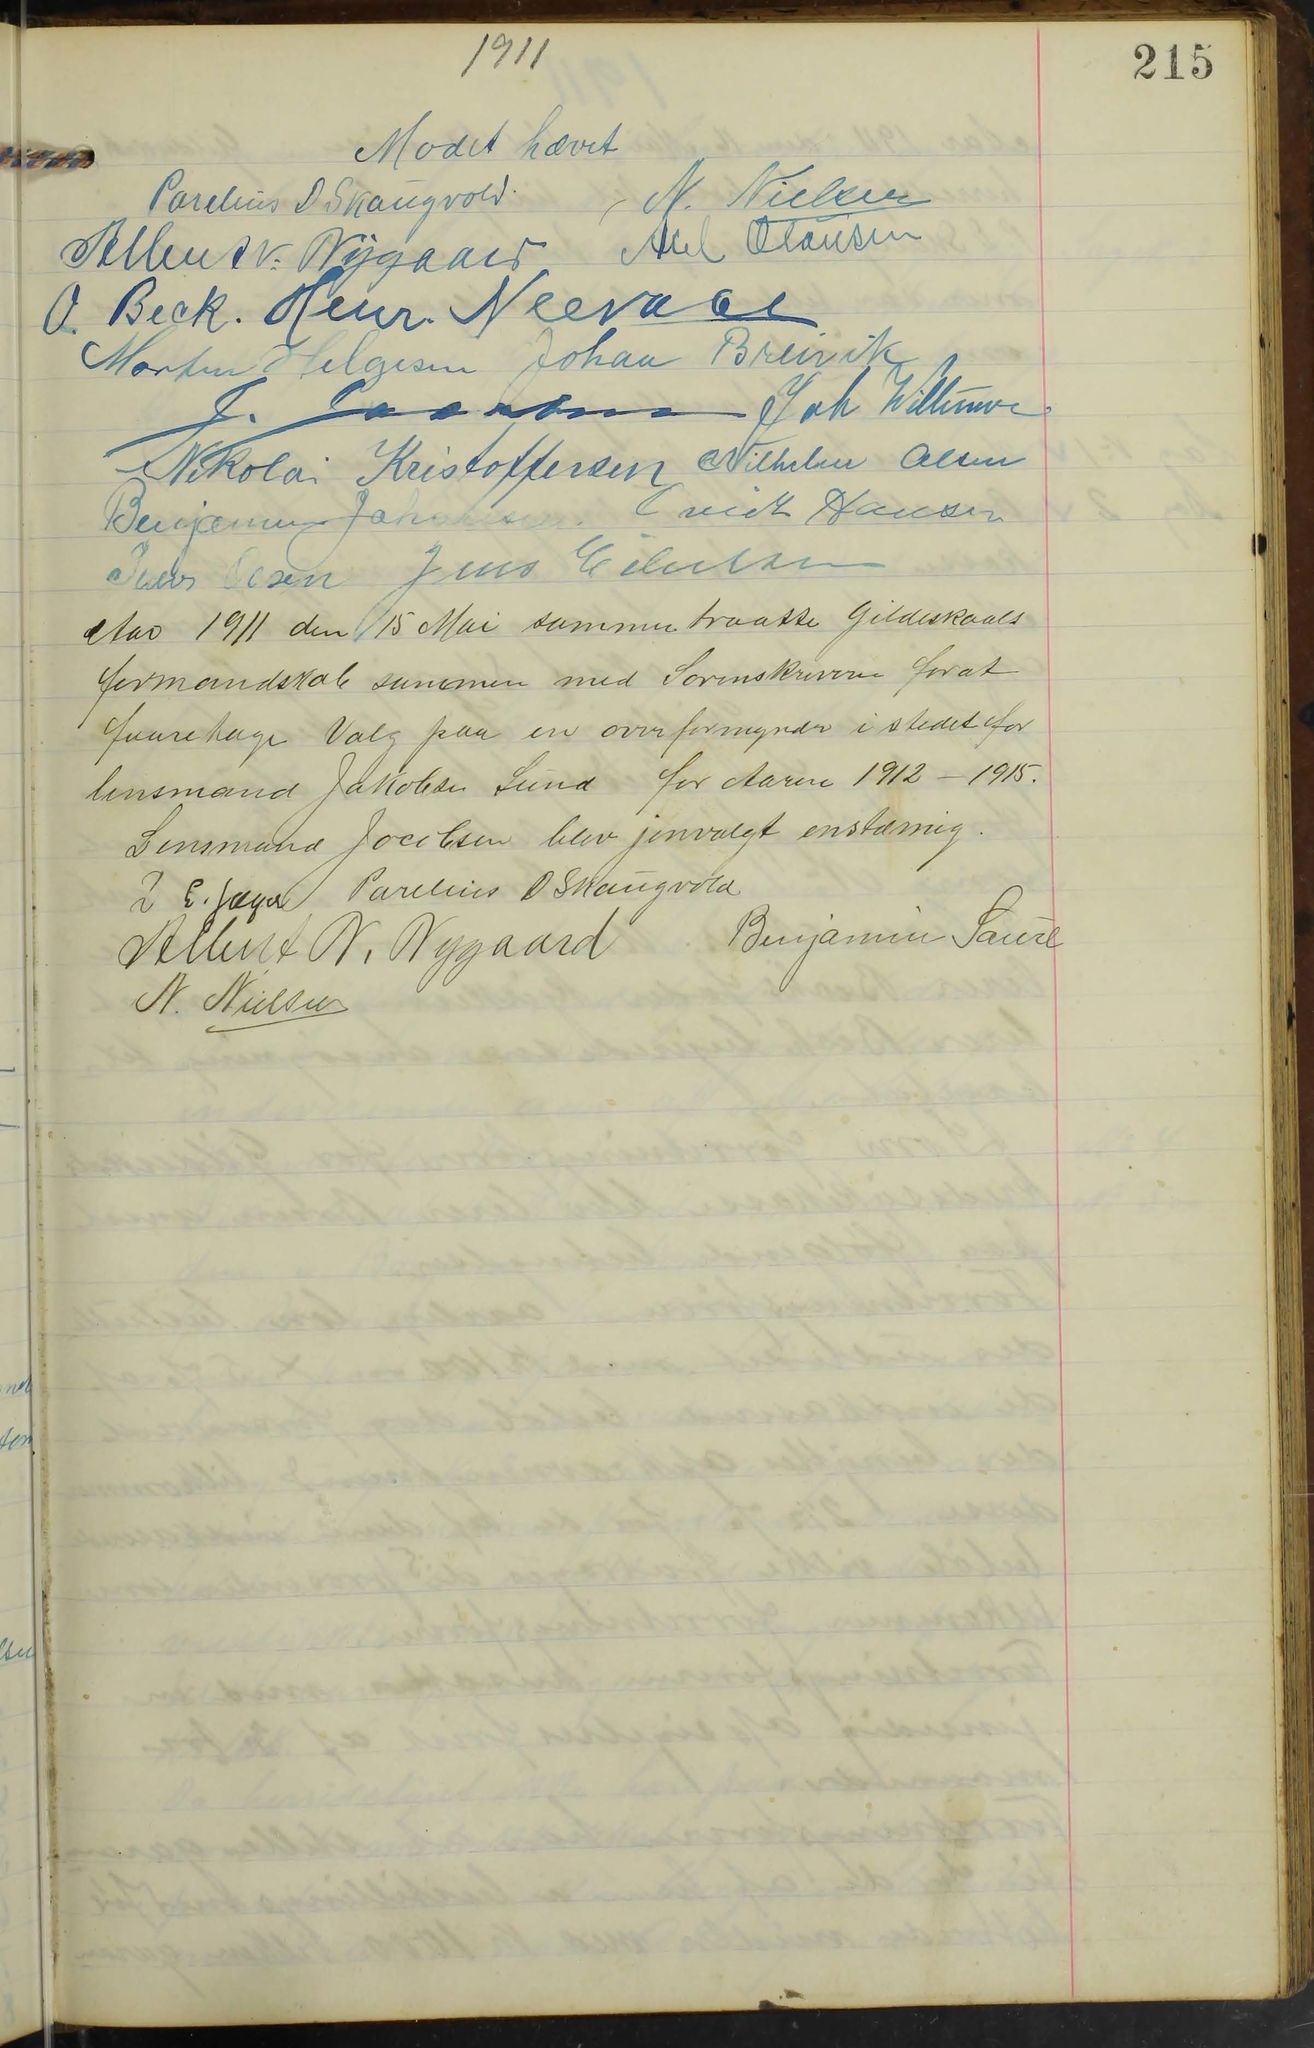 1911
215
Mødet hævet
Parelius D Skaugvold. N. Nielsen
Albert N. Nygaard Axel Olausen
O. Beck. Henr.
Morten Helgesen Johan Breivik
J. Joh
Nikolai Kristoffersen Vilhelm Olsen
Benjamin Johansen. Hansen
Peder Olsen Jens
Aar 1911 den 15 Mai sammentraatte Gildeskaals
formandskab sammen med Sorenskriveren forat
fouretage Valg paa en overformynder istedet for
lensmand Jakobsen Sund for Aarene 1912 - 1915.
Lensmand Jacobsen blev jenvalgt enstæmig.
E. Jæger Parelius D Skaugvold
Albert N. Nygaard Benjamin Saure
N. Nielsen